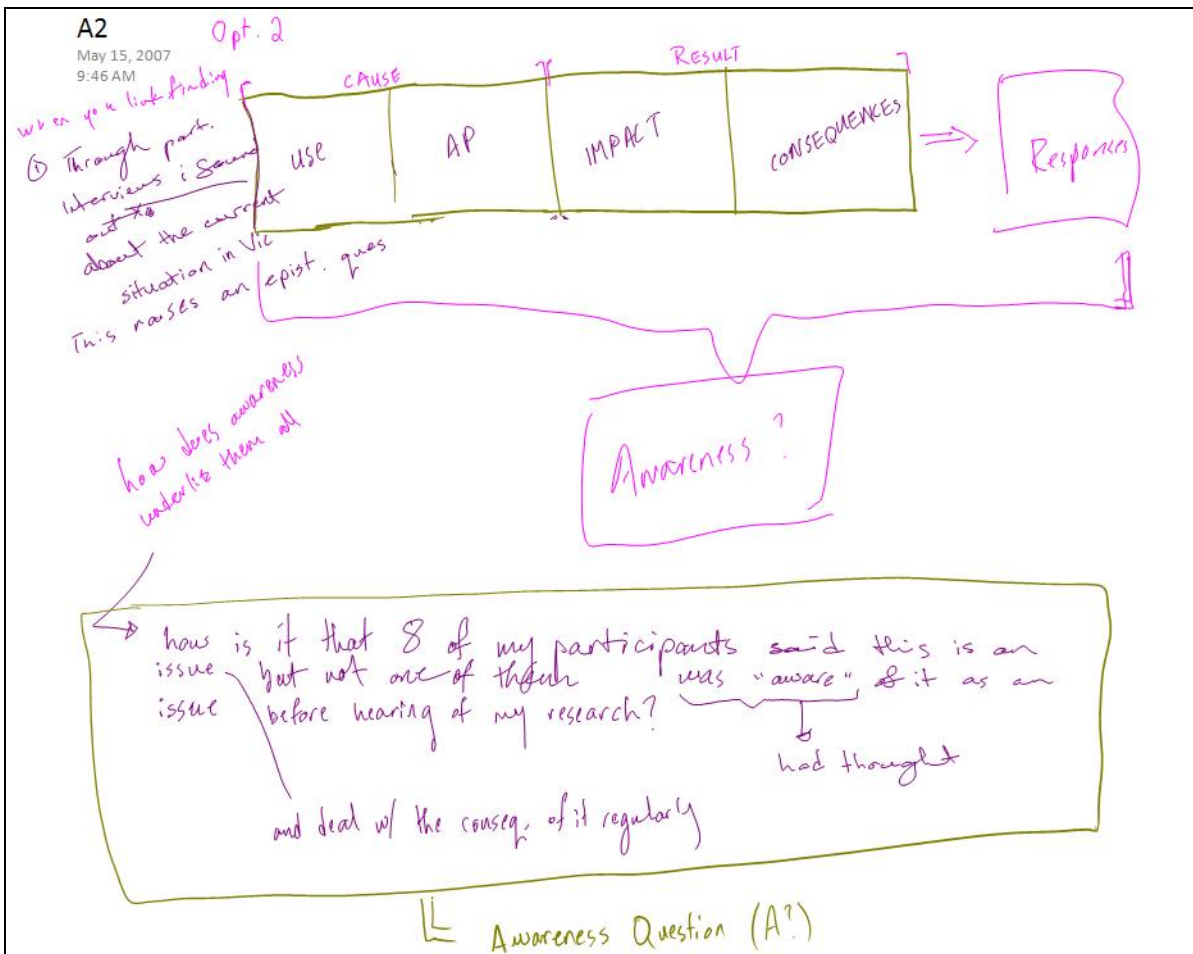 A2
Opt. 2
May 15, 2007
9:46 AM
CAUSE
RESULT
USE
AP
IMPACT
CONSEQUENCES
Responses
when you link finding
① Through part.
interviews i found
out
about the current
situation in Vic
This raises an epist. ques
Awareness ?
how does awareness
underlie them all
how is it that 8 of my participants said this is an
issue but not one of them was "aware" of it as an
issue before hearing of my research?
had thought
and deal w/ the conseq. of it regularly
Awareness Question (A?)